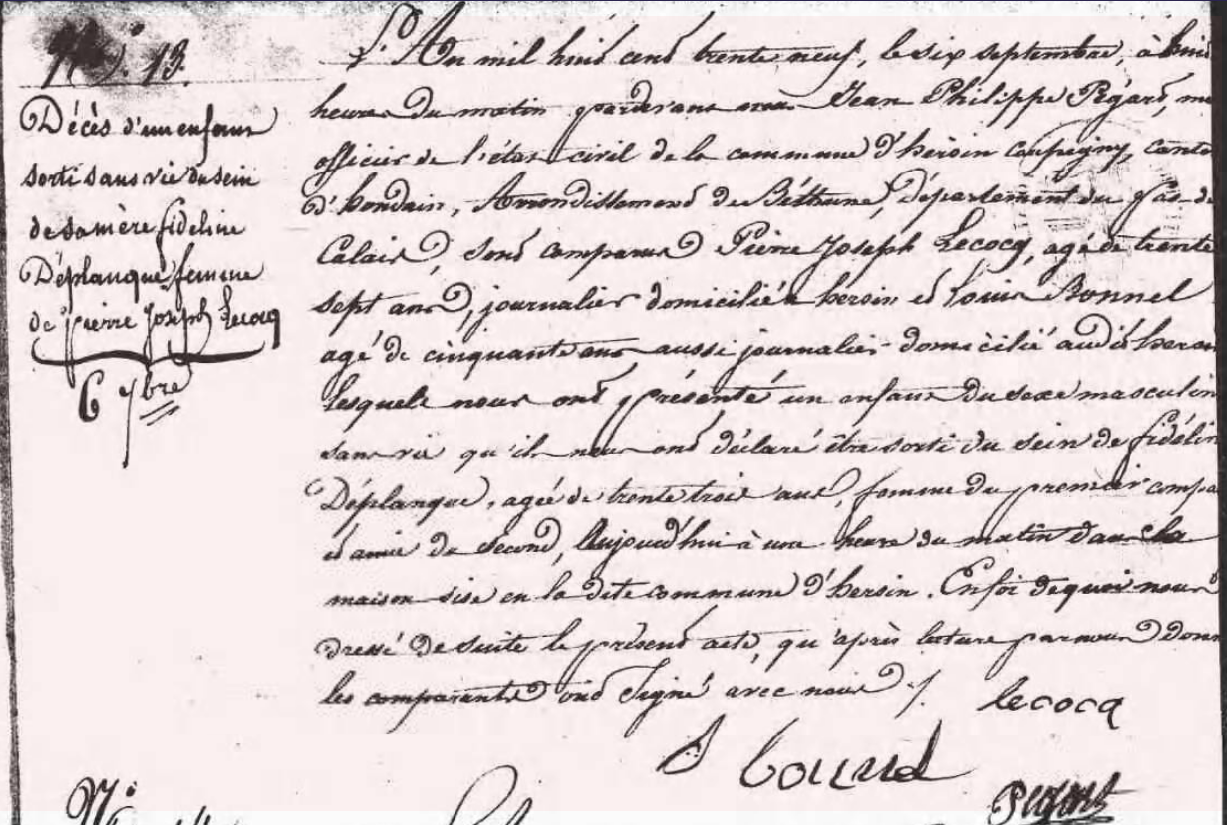 N.° 13.
Décès d'un enfant
sorti sans vie du sein
de sa mère fideline
Déplanque, femme
de pierre Joseph Lecocq
6 7bre
L'An mil huit cent trente neuf, le six septembre, à huit
heures du matin pardevant nous Jean Philippe Pégard,
officier de l'état civil de la commune d'hersin Coupigny, canto
d'houdain, Arrondissement de Béthune, Département du Pas-de
Calais, sont comparus Pierre Joseph Lecocq, agé de trente
sept ans, journalier domicilié à hersin et Louis Bonnel
agé de cinquante ans aussi journalier domicilié audit hersin
lesquels nous ont présenté un enfant du sexe masculin
sans vie qu'ils nous ont déclaré être sorti du sein de fidélin
Déplanque, agée de trente trois ans, femme du premier compa
et amie du second, Aujourd'hui à une heure du matin dans la
maison sise en la dite commune d'hersin. En foi de quoi nous
dressé de suite le présent acte, qu'après lecture par nous donn
les comparants ont signé avec nous ./.
lecocq
Pegard
N.°